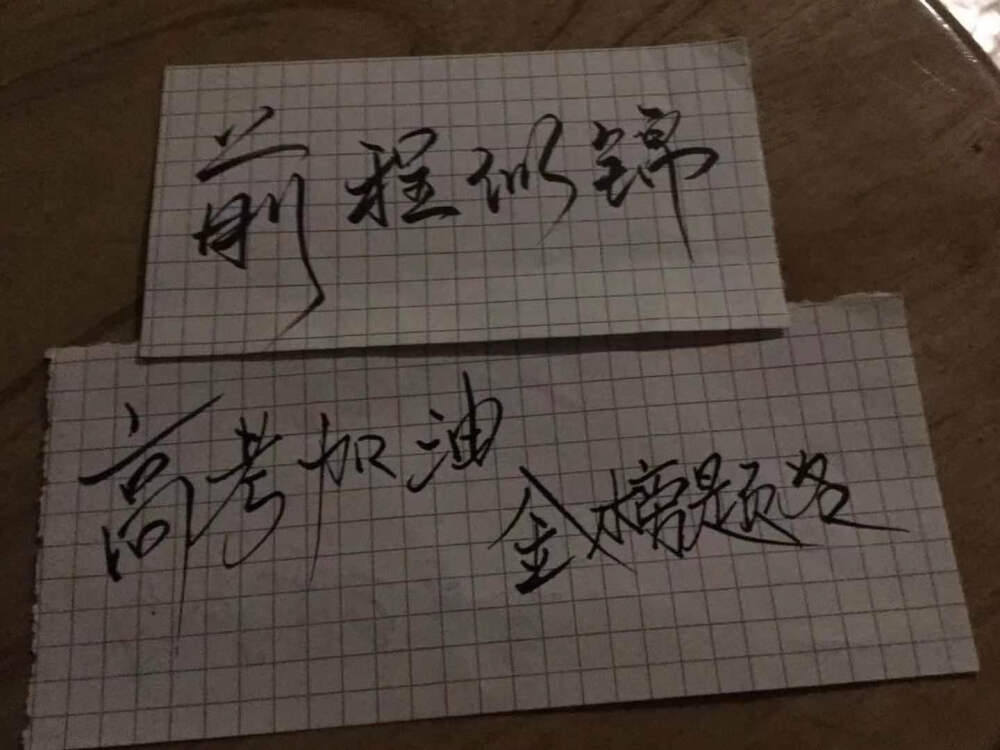 前程似锦
高考加油
金榜题名